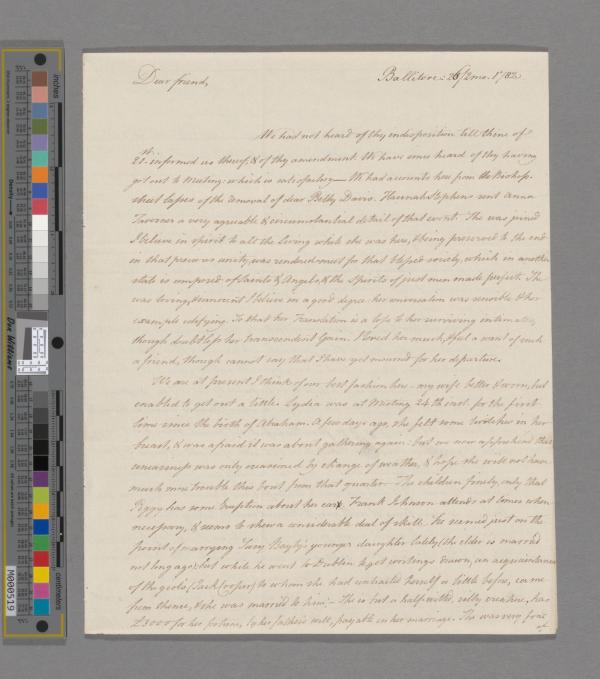 Dear friend, Ballitore: 26/2mo. 178
We had not heard of thy indisposition till thine of
21st. informed us thereof, & of thy amendment. We have since heard of thy having
got out to Meeting: which is satisfactory— We had accounts here from the Bishop-
street lasses of the removal of dear Betty Davis. Hannah Stephens sent Anna
Taverner a very agreable & circumstantial detail of that event. She was joined
I believe in spirit to all the living while she was here, & being preserved to the end
in that precious unity, was rendered meet for that blessed society, which in another
state is composed of Saints & Angels, & the Spirits of just men made perfect. She
was loving, & innocent I believe in a good degree: her conversation was sensible & her
example edifying. So that her Translation is a loss to her surviving intimates,
though doubtless her transcendent Gain. I loved her much, & feel a want of such
a friend, though cannot say that I have yet mourned for her departure.
We are at present I think of our best fashion here — my wife better & worn, but
enabled to get out a little. Lydia was at Meeting 24th inst. for the first
time since the birth of Abraham. A few days ago, she felt some in her
breast, & was afraid it was about gathering again: but we now apprehend this
uneasiness was only occasioned by change of weather, & hope she will not have
much more trouble this bout from that quarter— The children finely, only that
Peggy has some Eruption about her ear. Frank Johnson attends at times when
necessary, & seems to shew a considerable deal of skill. He seemed just on the
point of marrying younger daughter lately (the elder is married
not long ago) but while he went to Dublin to get writings drawn, an acquaintance
of the girl's (Jack Cooper) to whom she had contracted herself a little before, came
from thence, & she was married to him.— She is but a half-witted, silly creature, has
£3000 for her portion, by her father's will, payable on her marriage. She was very
of
inches
centimeters
Don Williams
M000519